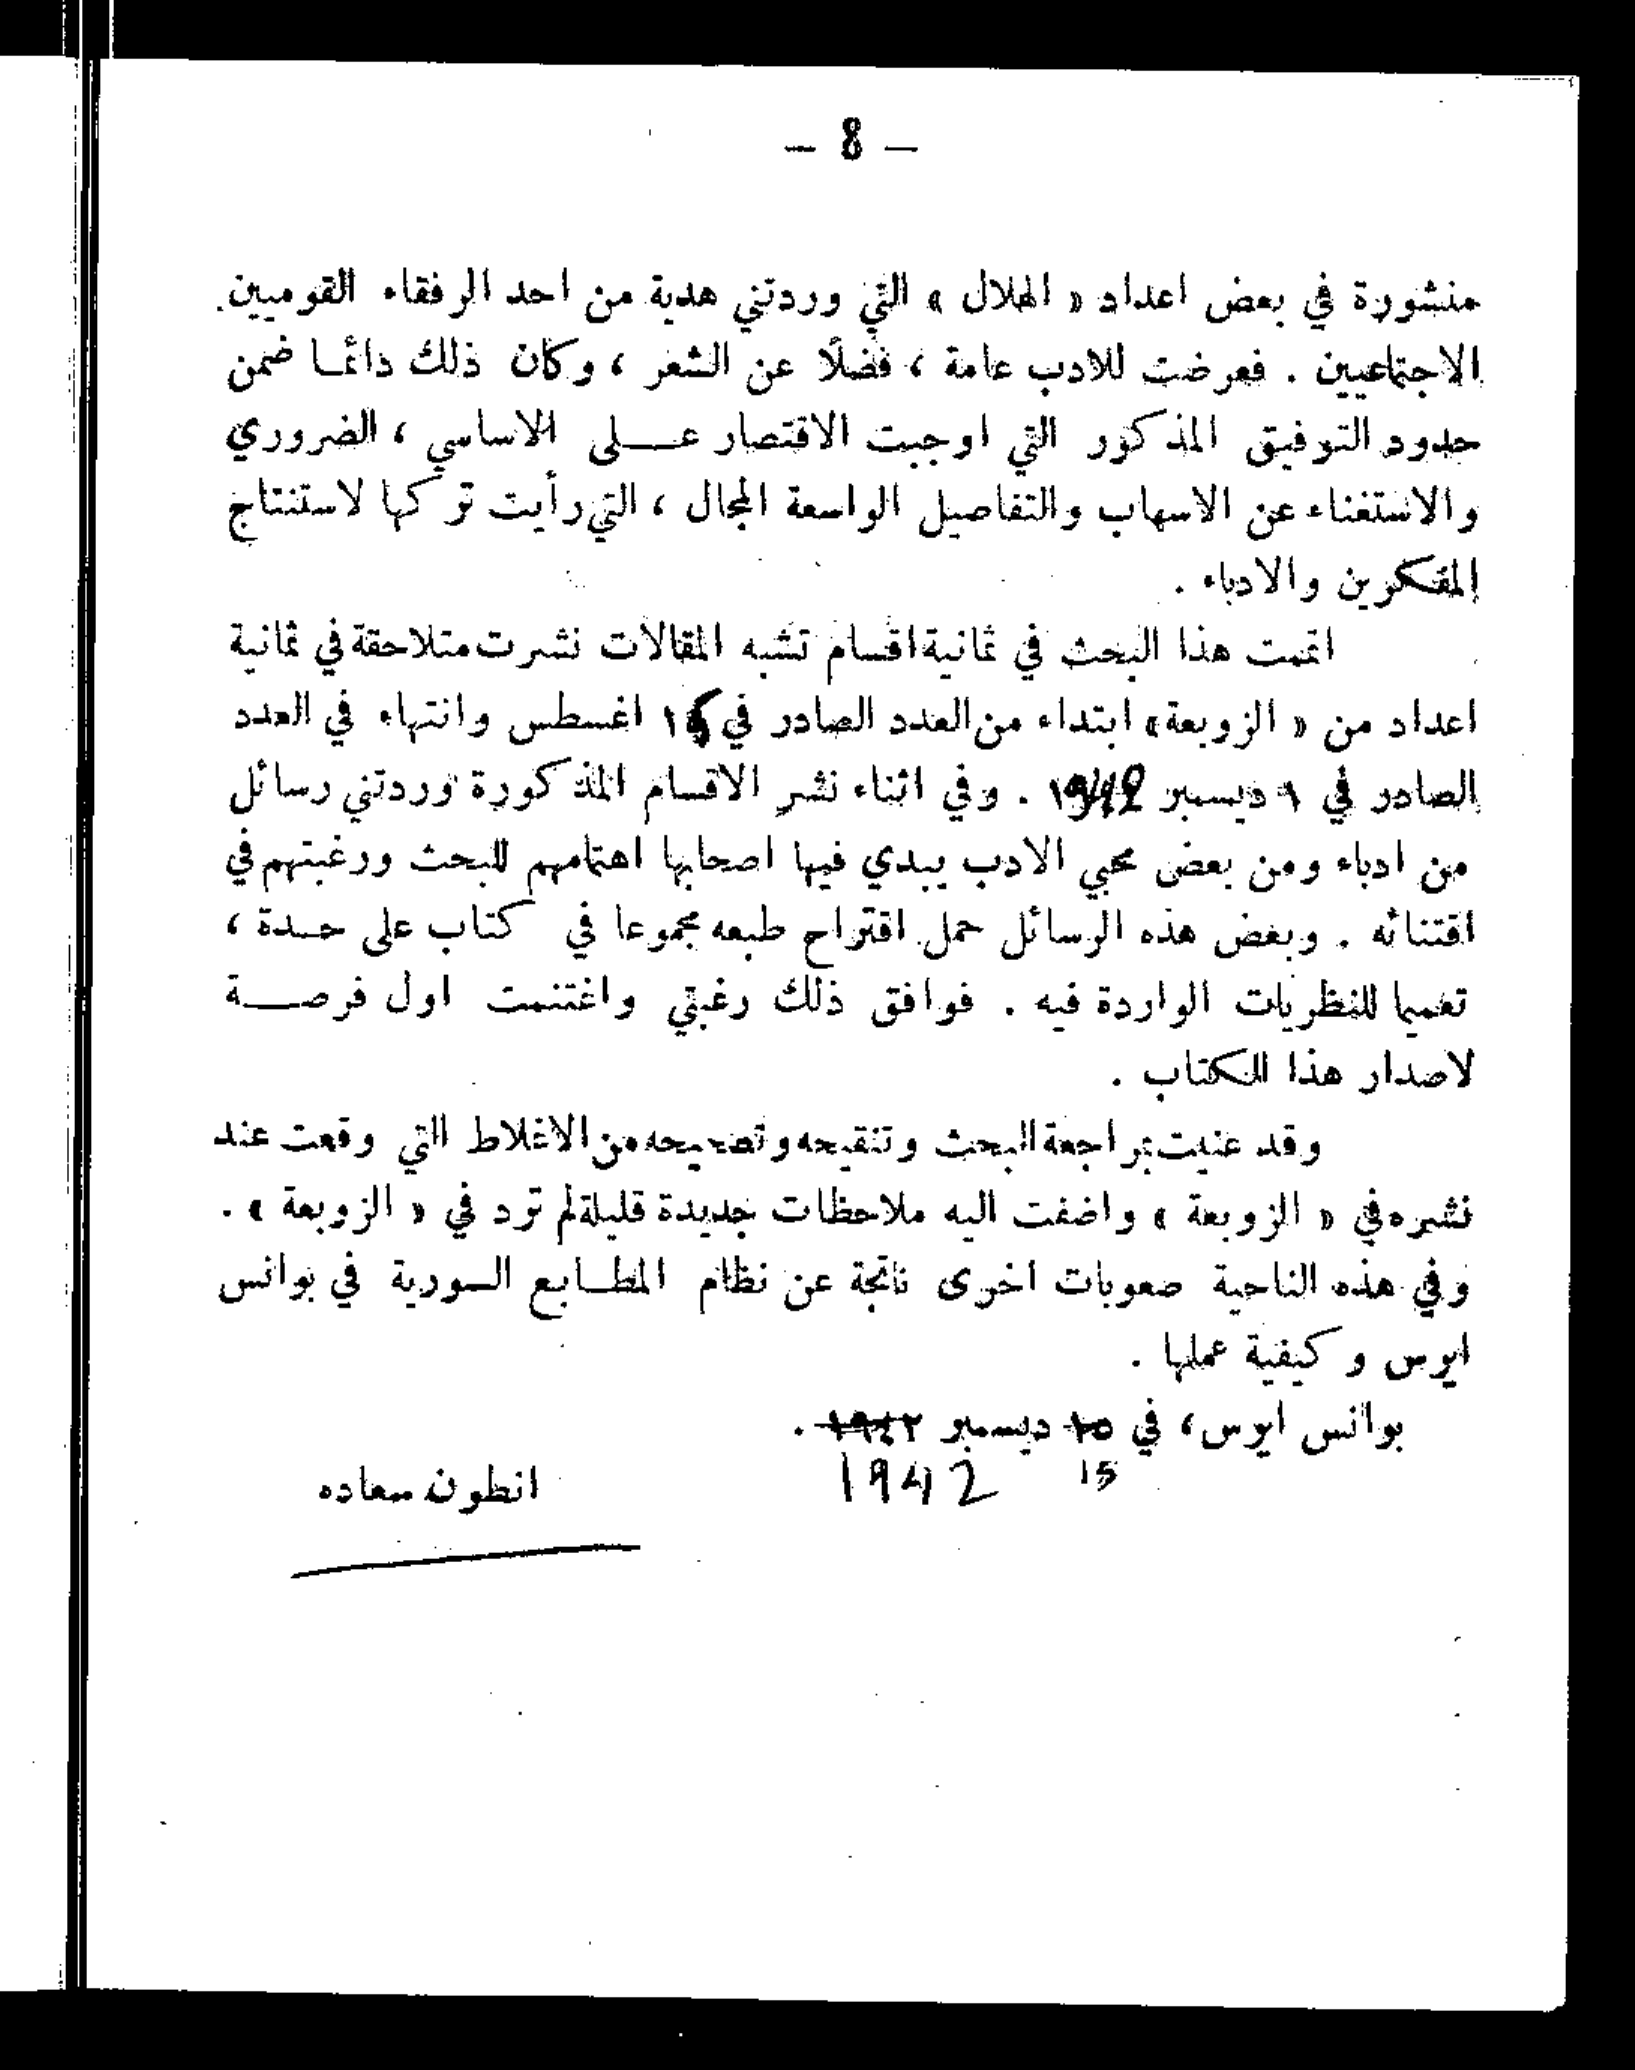 — 8 —
منشورة في بعض اعداد « الهلال » التي وردتني هدية من احد الرفقاء القوميين
الاجتماعيين . فعرضت للادب عامة ، فضلًا عن الشعر ، وكان ذلك دائمـا ضمن
حدود التوفيق المذكور التي اوجبت الاقتصار عـــلى الاساسي ، الضروري
والاستغناء عن الاسهاب والتفاصيل الواسعة المجال ، التي رأيت تركها لاستنتاج
المفكرين والادباء .
اتممت هذا البحث في ثمانية اقسام تشبه المقالات نشرت متلاحقة في ثمانية
اعداد من « الزوبعة » ابتداء من العدد الصادر في اغسطس وانتهاء في العدد
الصادر في ١ ديسمبر 1942 . وفي اثناء نشر الاقسام المذكورة وردتني رسائل
من ادباء ومن بعض محبي الادب يبدي فيها اصحابها اهتمامهم للبحث ورغبتهم في
اقتنائه . وبعض هذه الرسائل حمل اقتراح طبعه مجموعا في كتاب على حـدة ،
تعميما للنظريات الواردة فيه . فوافق ذلك رغبتي واغتنمت اول فرصـــة
لاصدار هذا الكتاب .
وقد عنيت بمراجعة البحث وتنقيحه وتصحيحه من الاغلاط التي وقعت عند
نشره في « الزوبعة » واضفت اليه ملاحظات جديدة قليلة لم ترد في « الزوبعة » .
وفي هذه الناحية صعوبات اخرى ناتجة عن نظام المطـابع السورية في بوانس
ايرس وكيفية عملها .
بوانس ايرس ، في ١٥ ديسمبر ١٩٤٢ .
15 1942
انطون سعاده